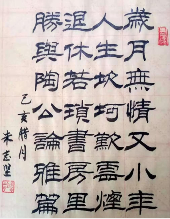 歲月無情又小年
人生坎坷歎雲煙
退休若瑣書房里
勝與陶公論雅篇
乙亥腊月
朱志坚